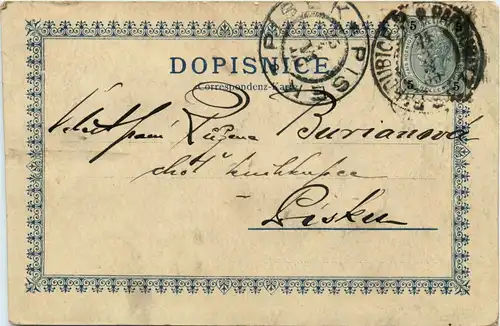 DOPISNICE.
(Correspondenz-Karte)
PÍSEK PISEK
PARDUBICE
5 5
paní Růžena Burianová
choť knihkupce
Písku